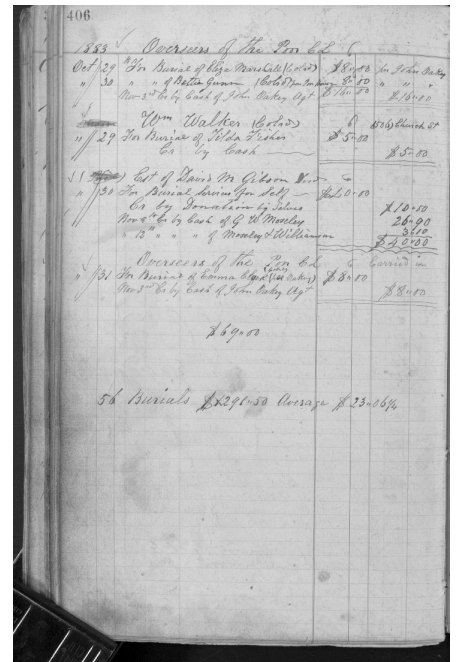 406
1883 Overseers of the Poor Ch
Oct 29 For Burial of Eliza Marshall (Colod) $8"00 per John Oakey
" 30 " " of Bettie Gunn (Colod) 8"00 " " "
Nov 3rd Cr by Cash of John Oakey Agt $16"00 $16"00
Wm Walker (Colod) Church St
" 29 For Burial of Tilda Fisher $5"00
Cr by Cash $5"00
Est of David M Gibson
" 30 For Burial Services for Self $40"00
Cr by Donation by Selves $10"00
Nov Cr by Cash of G W Moseley 26"90
" 12th " " " of Moseley & Williamson 3"10
$40"00
Overseers of the Poor Ch
" 31 For Burial of Emma (John Oakey) $8"00
Nov 3rd Cr by Cash of John Oakey Agt $8"00
$69"00
56 Burials $1291"50 Average $23"06¼